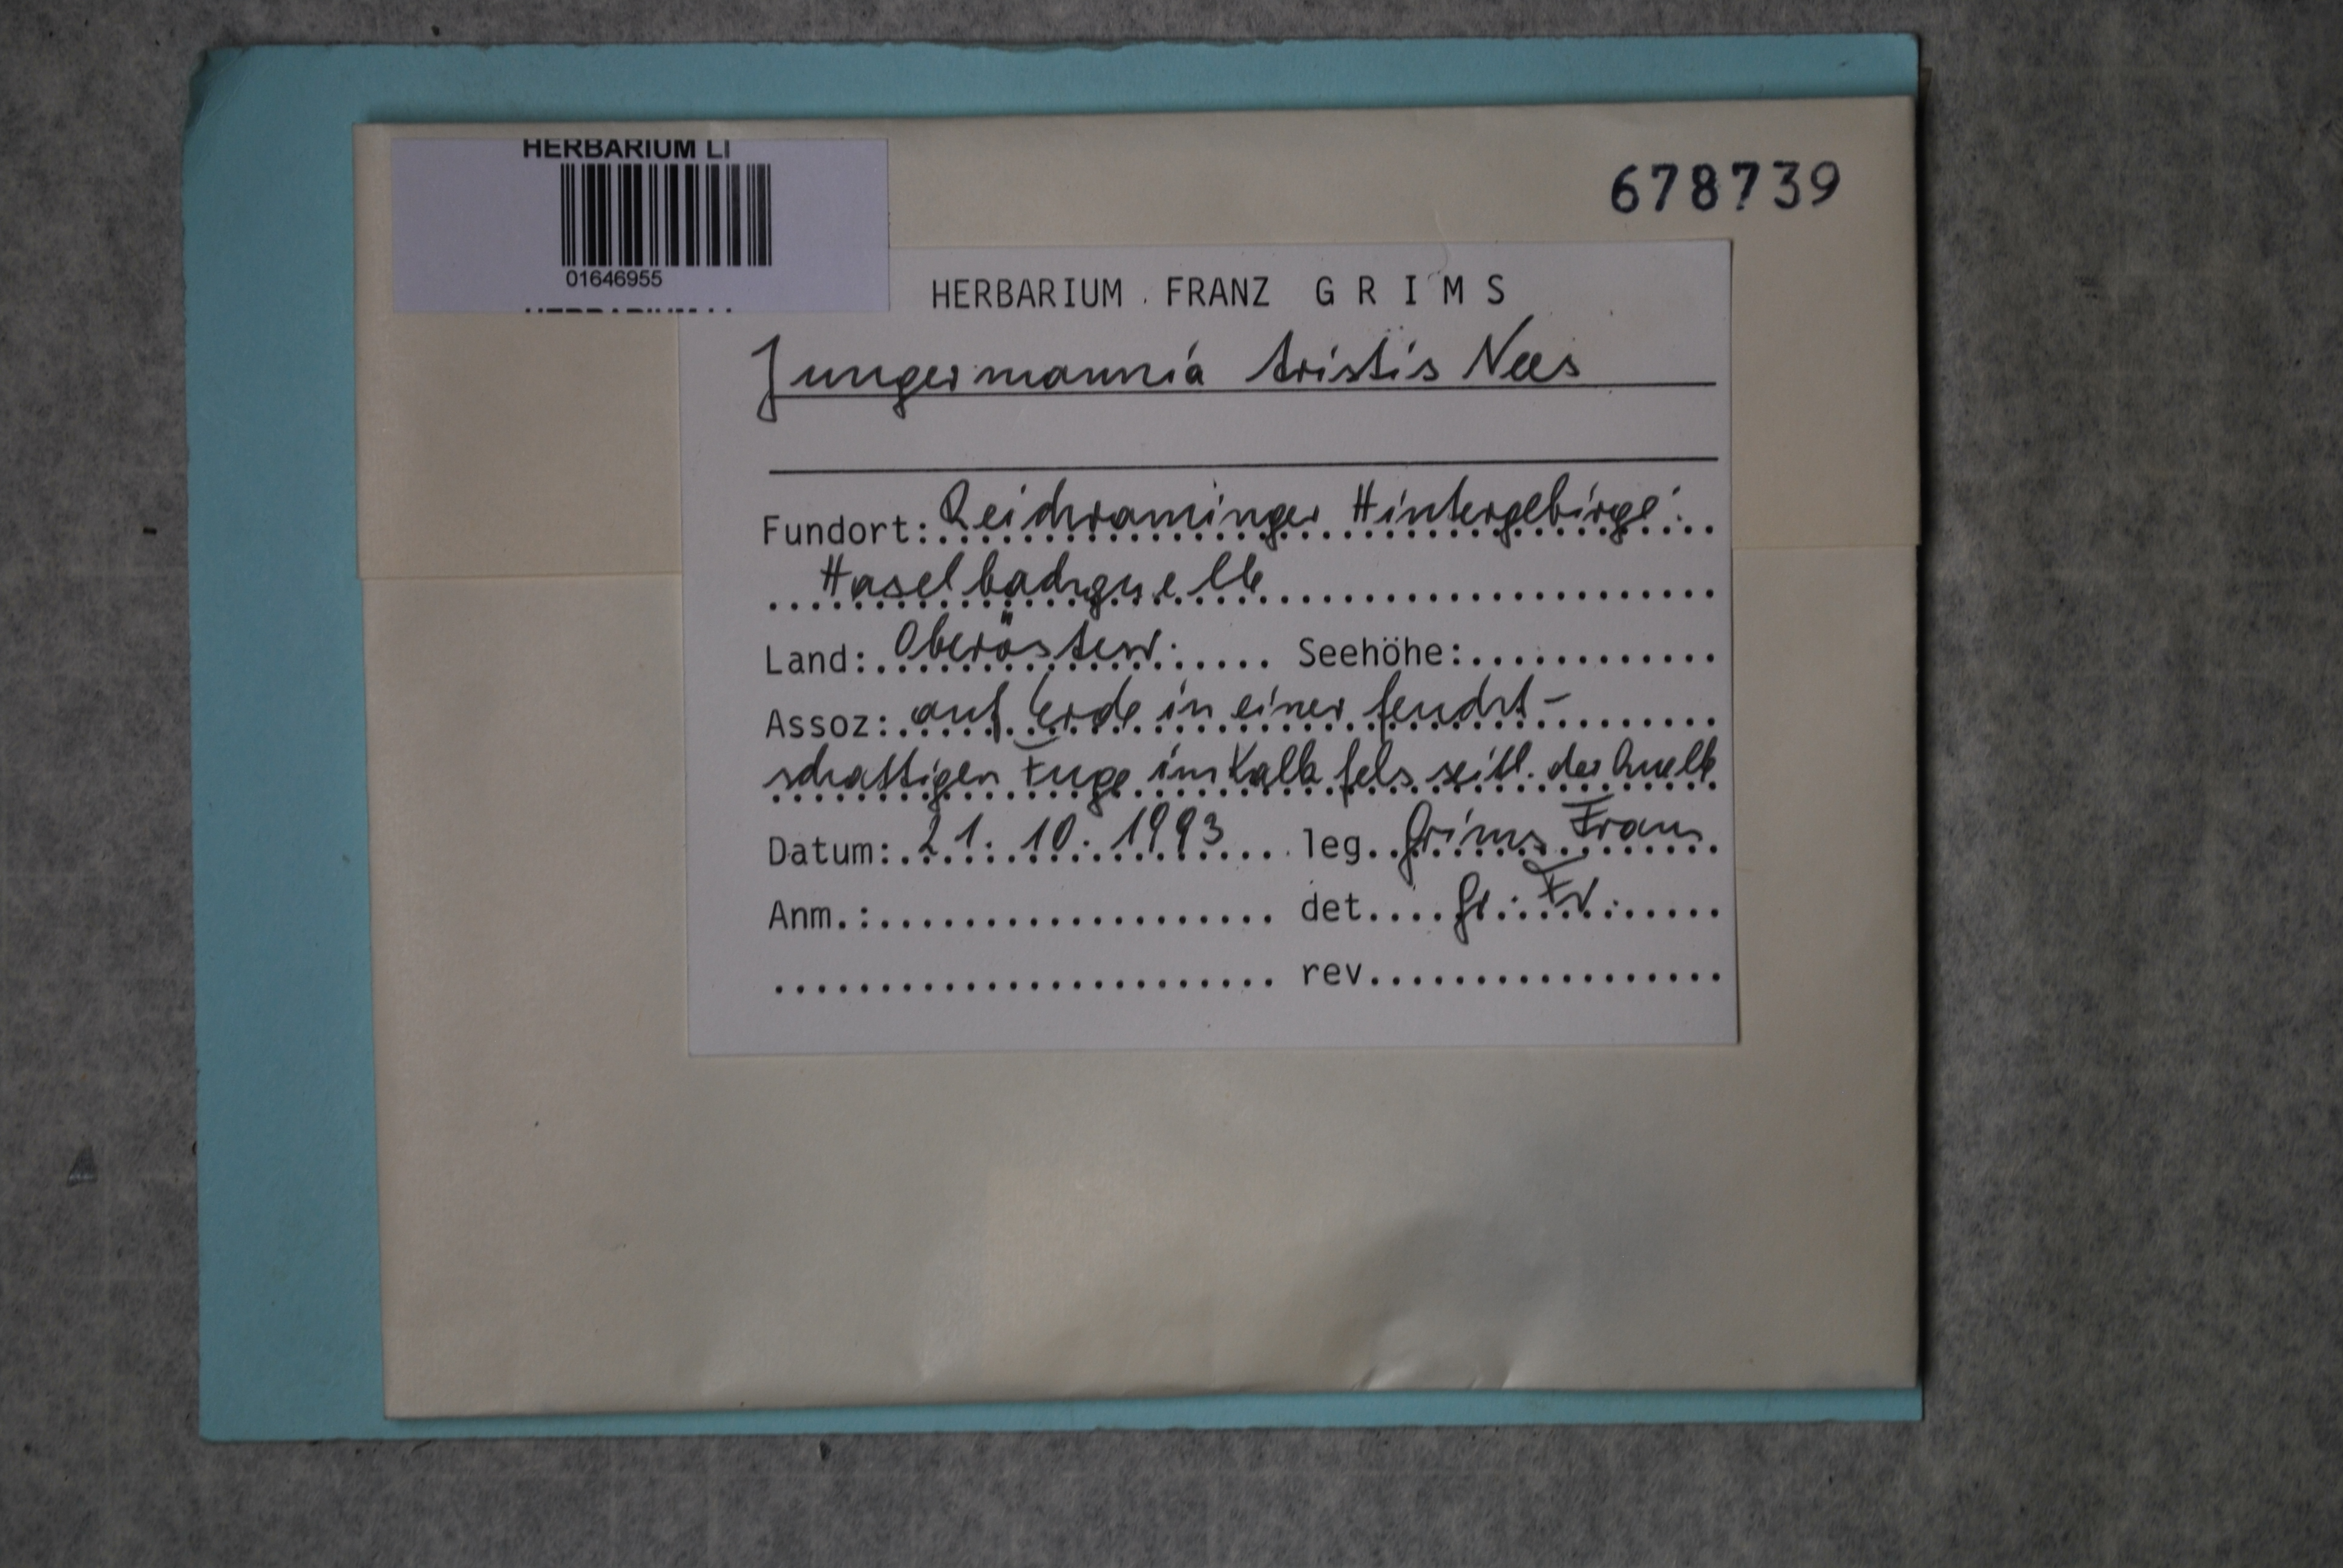 HERBARIUM LI
01646955
678739
HERBARIUM FRANZ GRIMS
Jungermannia tristis Nees
Fundort: Reichraminger Hintergebirge:
Haselbachquelle
Land: Oberösterr. Seehöhe:
Assoz: auf Erde in einer feucht-
schattigen Fuge im Kalkfels seitl. der Quelle
Datum: 21. 10. 1993 leg. Grims Franz
Anm.: det. Gr. Fr.
rev.